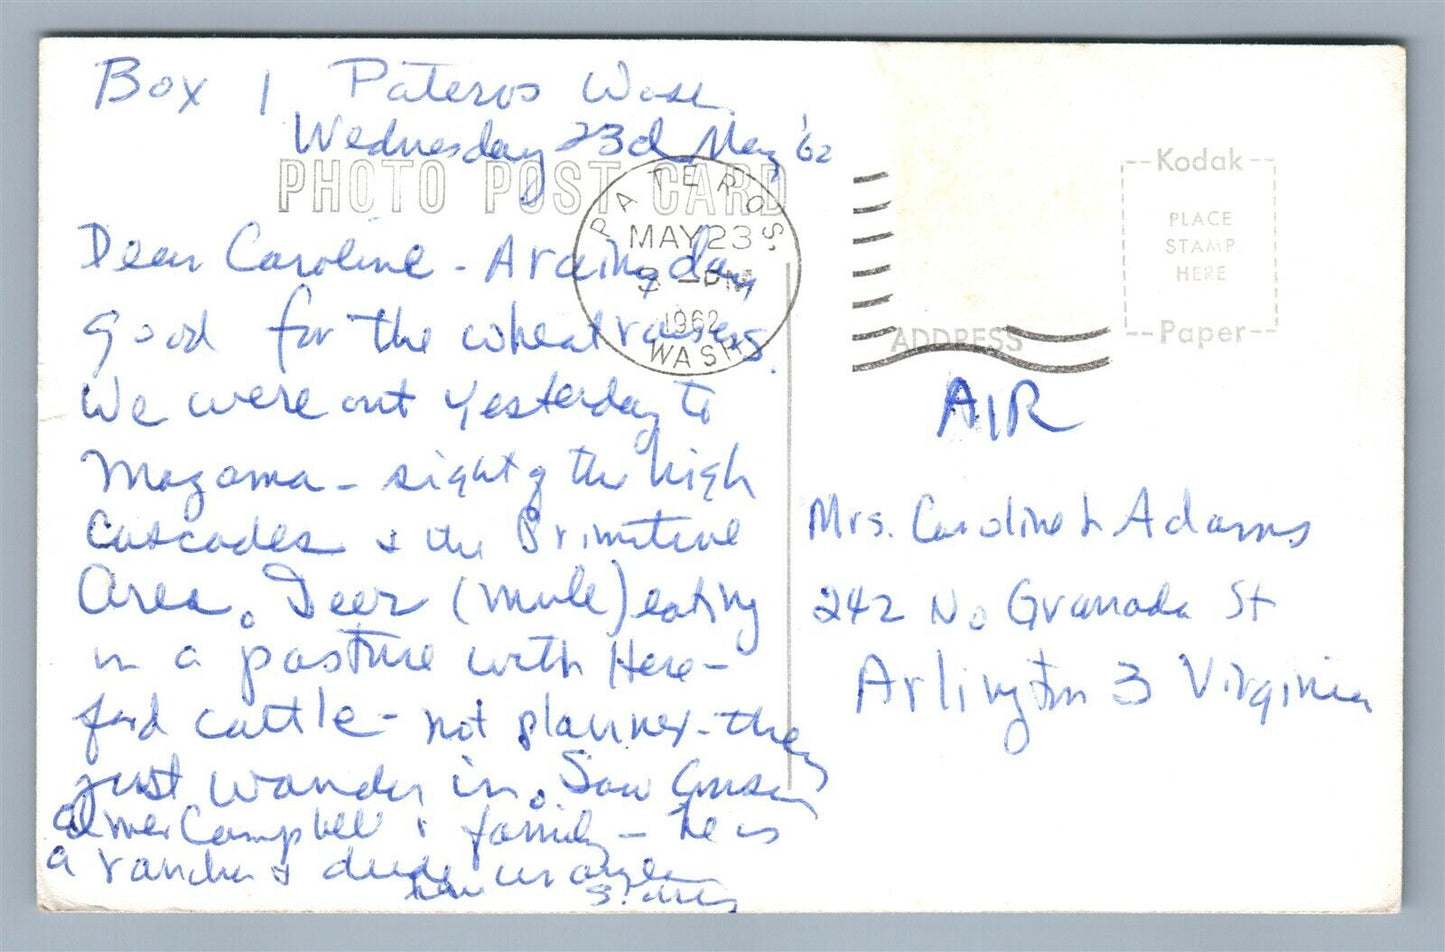 Box 1 Pateros Wash.
Wednesday 23d May '62
PHOTO POST CARD
PATEROS.
MAY 23
PM
1962
WASH.
Dear Caroline - A rainy day
good for the wheat raisers.
We were out yesterday to
Mazama - sight of the high
Cascades & the Primitive
Area. Deer (mule) eating
in a pasture with Here-
ford cattle - not planned - they
just wander in. Saw Cousin
Elmer Campbell & family - he is
a rancher & dude wrangler
Kodak
PLACE
STAMP
HERE
Paper
ADDRESS
AIR
Mrs. Caroline L Adams
242 No Granada St
Arlington 3 Virginia